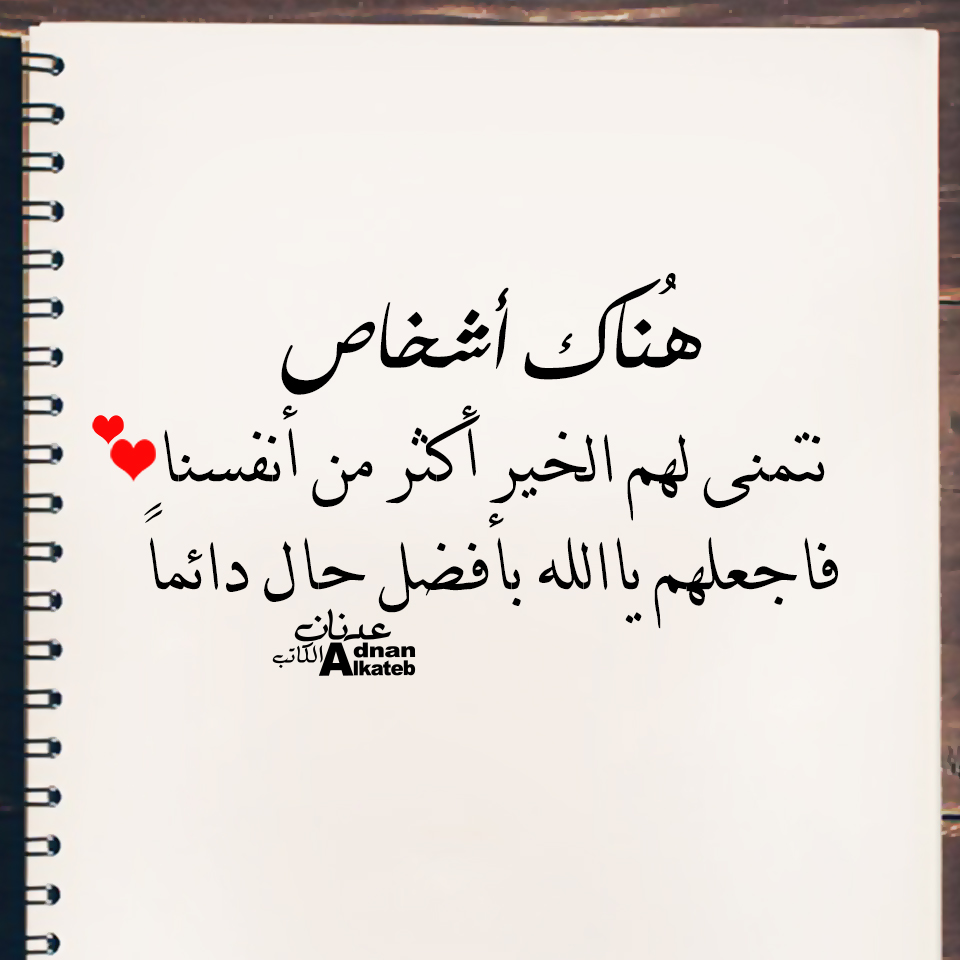 هُناك أشخاص
نتمنى لهم الخير أكثر من أنفسنا
فاجعلهم ياالله بأفضل حال دائماً
عدنان
الكاتب
Adnan
Alkateb